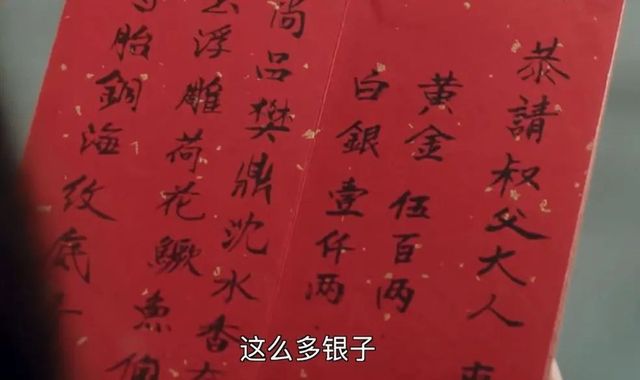 恭請叔父大人
黄金伍百两
白銀壹仟两
尚品樊鼎沈水香
浮雕荷花鳜魚
胎銅海紋底
这么多银子